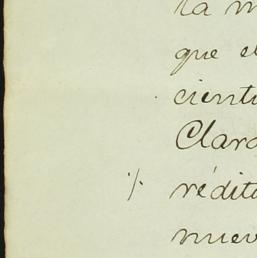 la m
que el
cient
Clara
·/· rédit
nuev